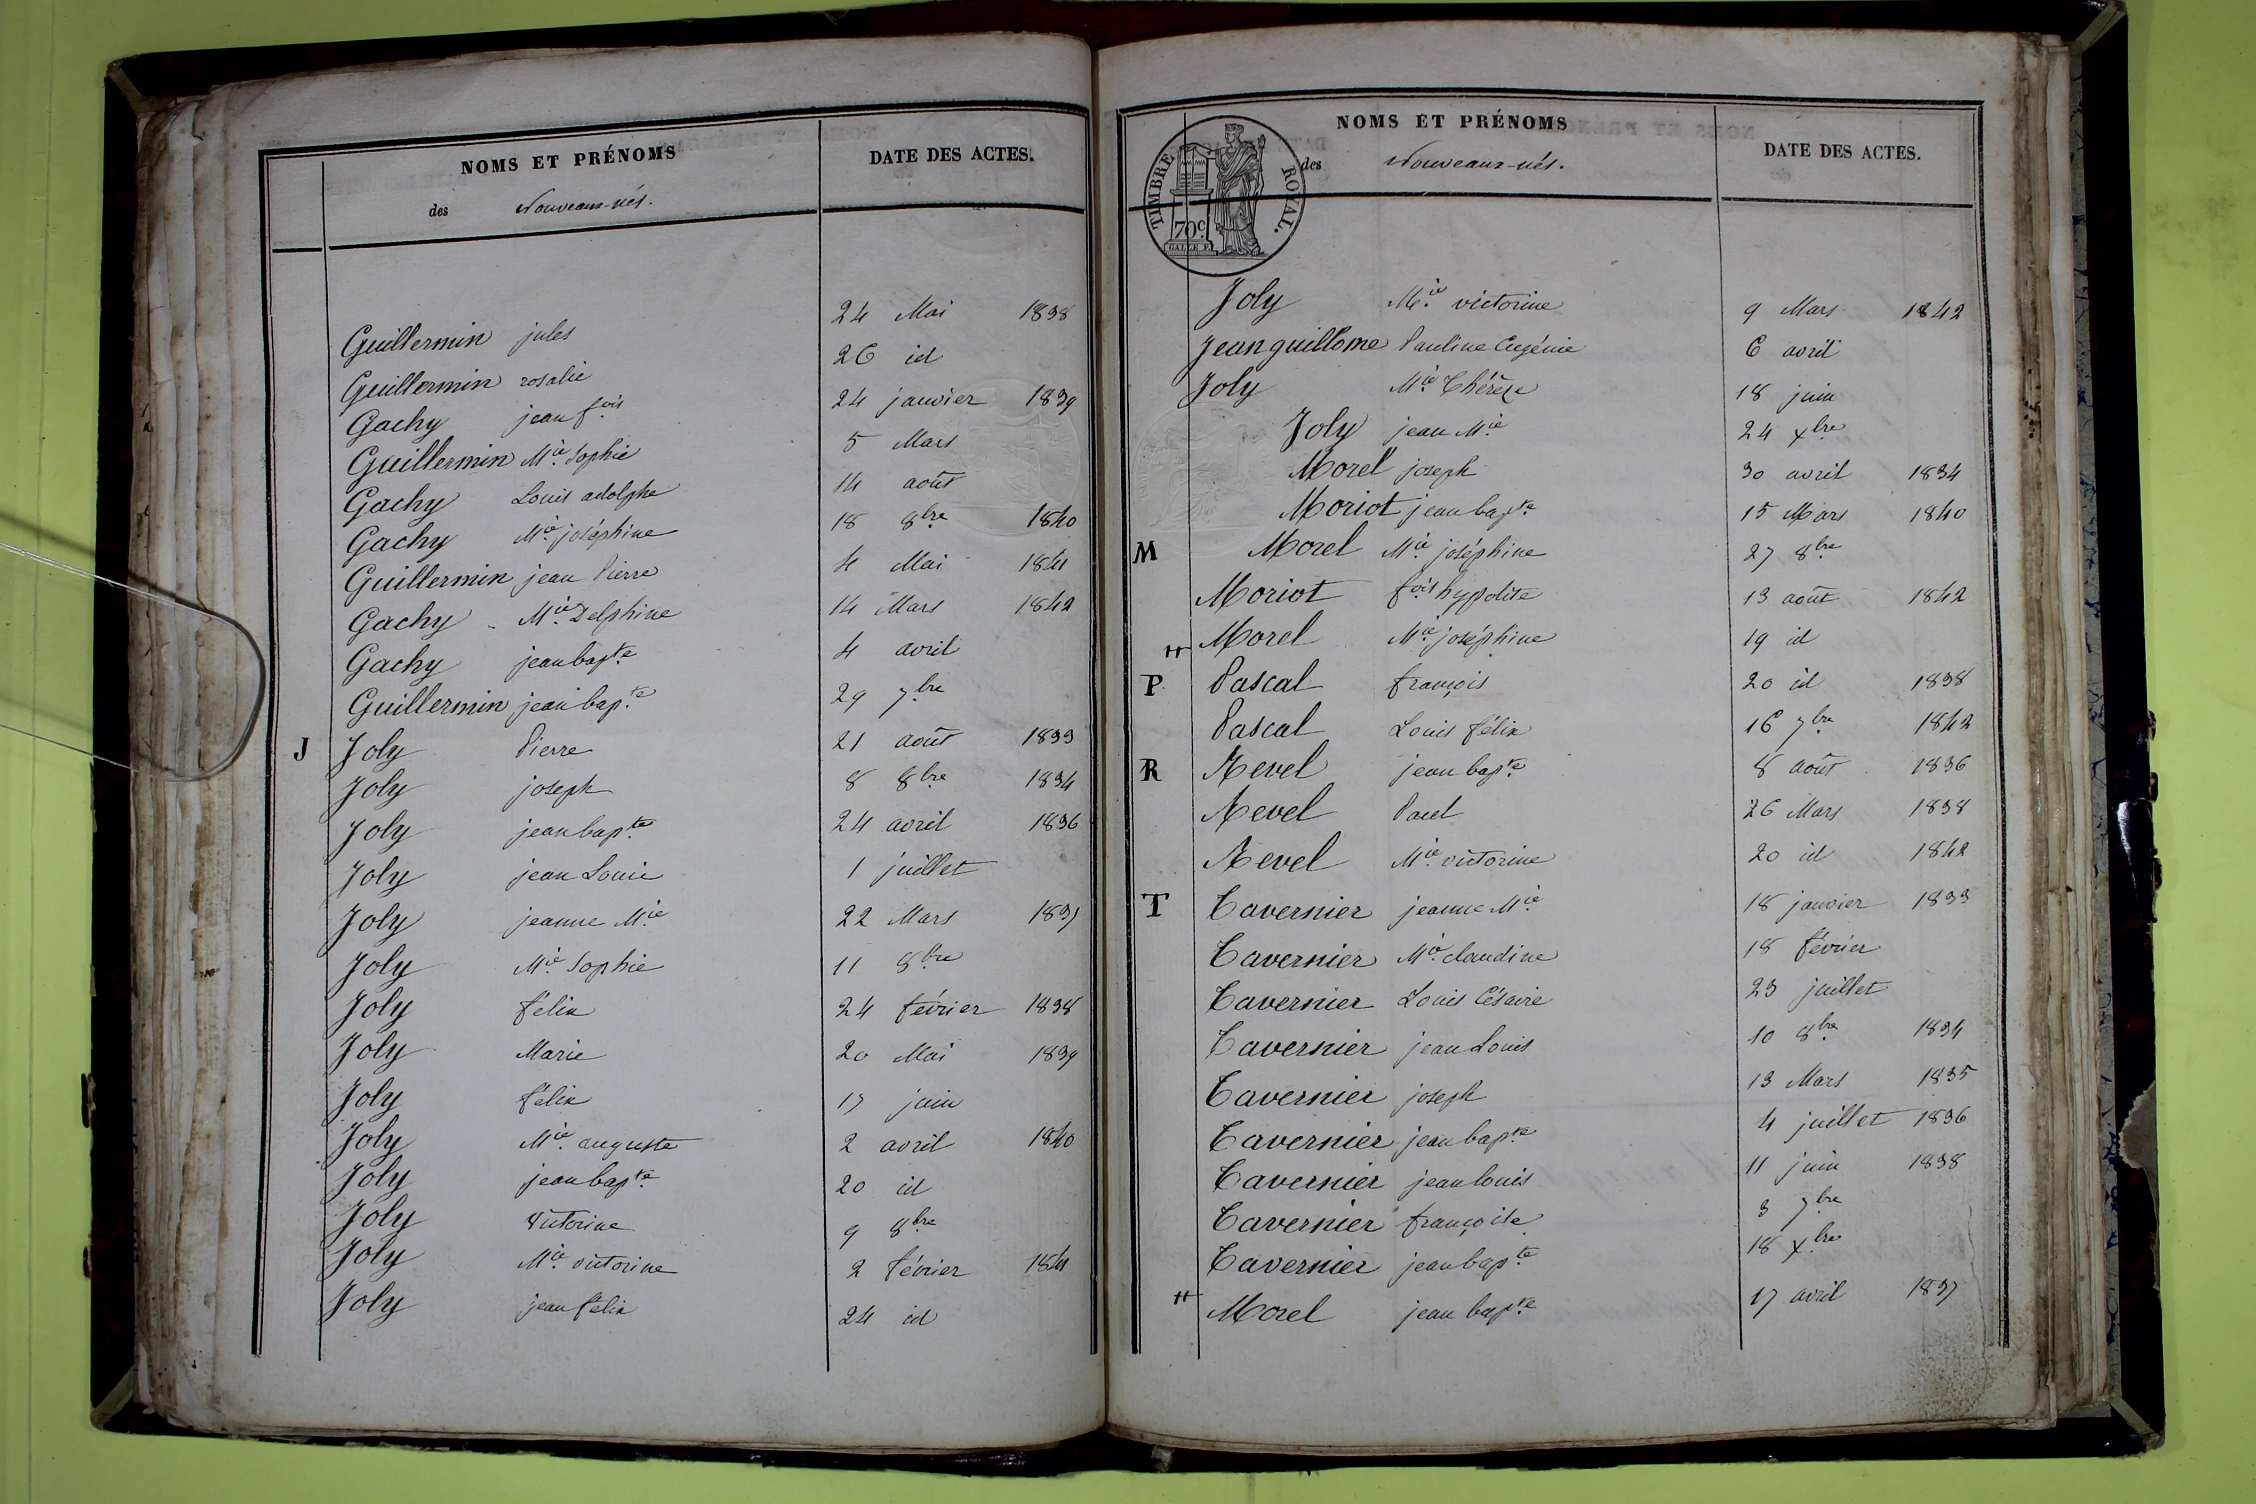 NOMS ET PRÉNOMS DATE DES ACTES.
des Nouveaux-nés.
Guillermin jules 24 Mai 1838
Guillermin rosalie 26 id
Gachy jean fois 24 janvier 1839
Guillermin Mie Sophie 5 Mars
Gachy Louis adolphe 14 août
Gachy Mie joséphine 18 8bre 1840
Guillermin jean Pierre 4 Mai 1841
Gachy Mie Delphine 14 Mars 1842
Gachy jean bapte 4 avril
Guillermin jean bapte 29 7bre
J Joly Pierre 21 août 1833
Joly joseph 8 8bre 1834
Joly jean bapte 24 avril 1836
Joly jean Louis 1 juillet
Joly jeanne Mie 22 Mars 1837
Joly Mie Sophie 11 8bre
Joly félix 24 février 1838
Joly Marie 20 Mai 1839
Joly félix 17 juin
Joly Mie auguste 2 avril 1840
Joly jean bapte 20 id
Joly Victorine 9 8bre
Joly Mie victorine 2 février 1841
Joly jean félix 24 id
NOMS ET PRÉNOMS DATE DES ACTES.
des Nouveaux-nés.
TIMBRE ROYAL.
70c
GALLE F.
Joly Mie victorine 9 Mars 1842
Jeanguillome Pauline Eugénie 6 avril
Joly Mie Thérèze 18 juin
Joly jean Mie 24 xbre
Morel joseph 30 avril 1834
Moriot jean bapte 15 Mars 1840
M Morel Mie joséphine 27 8bre
Moriot fois hypolite 13 août 1842
Morel Mie joséphine 19 id
P Pascal françois 20 id 1838
Pascal Louis félix 16 7bre 1842
R Revel jean bapte 8 août 1836
Revel Paul 26 Mars 1838
Revel Mie victorine 20 id 1842
T Tavernier jeanne Mie 18 janvier 1833
Tavernier Mie claudine 18 février
Tavernier Louis Césaire 23 juillet
Tavernier jean Louis 10 8bre 1834
Tavernier joseph 13 Mars 1835
Tavernier jean bapte 4 juillet 1836
Tavernier jean louis 11 juin 1838
Tavernier françoise 3 7bre
Tavernier jean bapte 18 xbre
Morel jean bapte 17 avril 1837